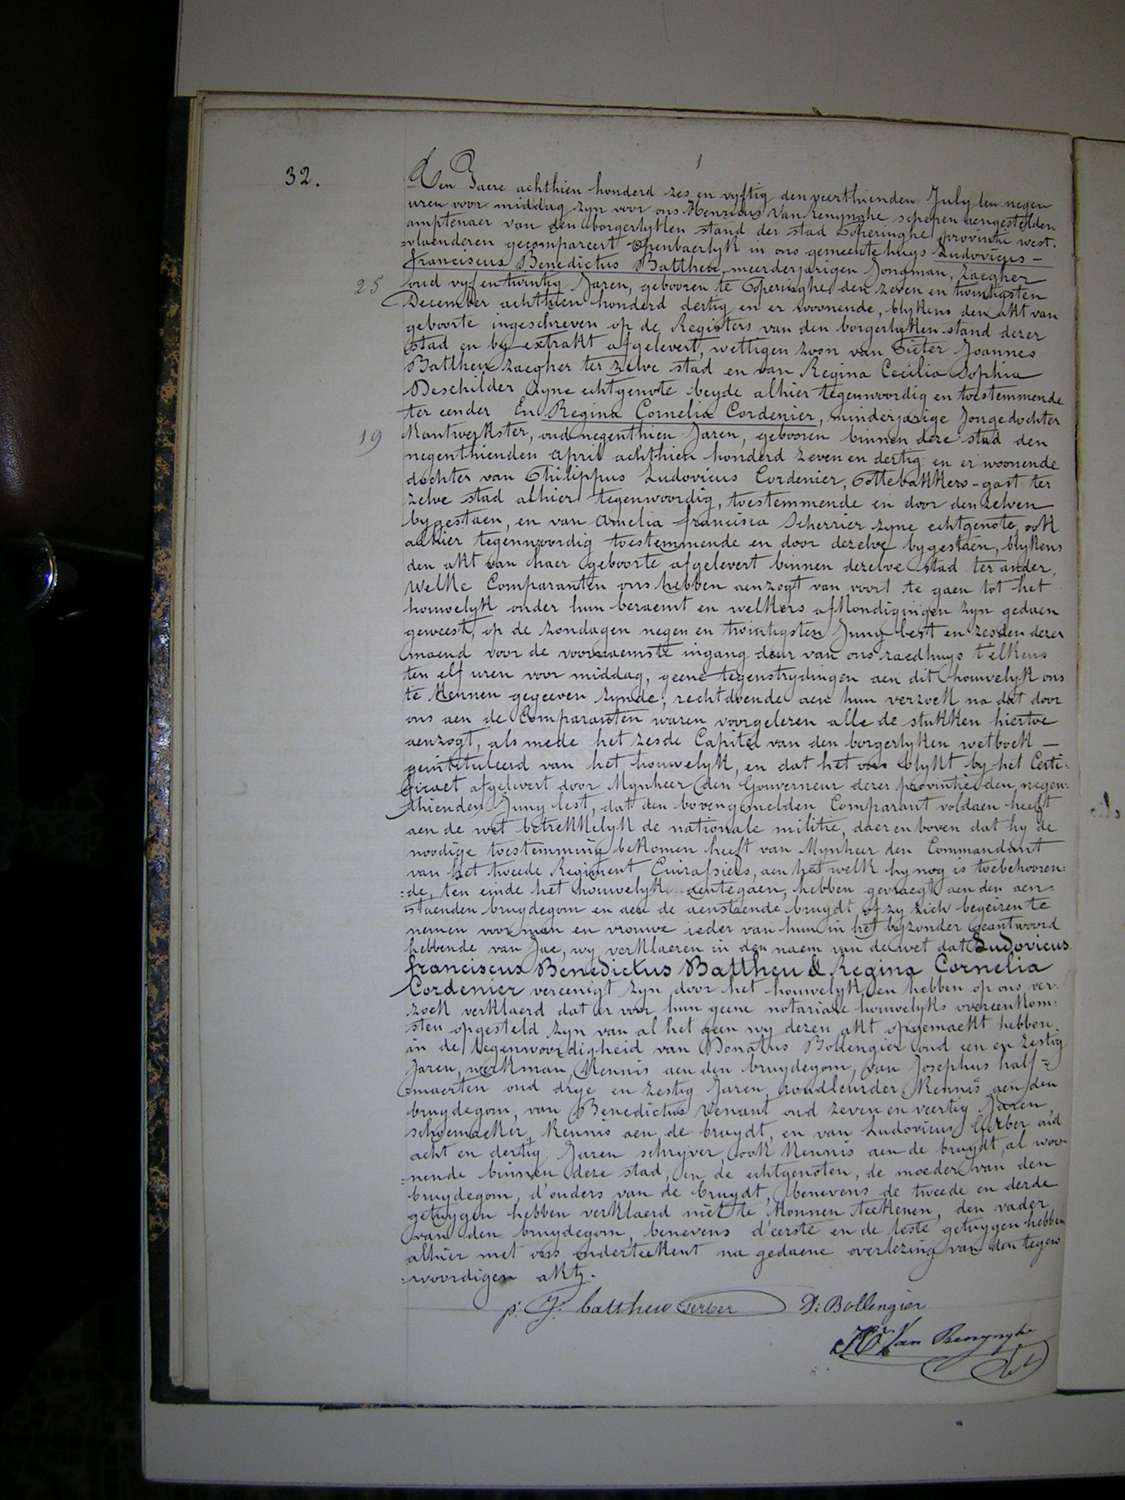 32.
Den Jaere achthien honderd zes en vyftig den veerthienden July ten negen
uren voor middag zyn voor ons Henricus Van Renynghe schepen aengestelden
amptenaer van den borgerlyken stand der stad Poperinghe provintie west-
vlaenderen gecompareert openbaerlyk in ons gemeentehuys Ludovicus
franciscus Benedictus Battheu, meerderjarigen Jongman, Zaegher
25
oud vyf en twintig Jaren, gebooren te Poperinghe den zeven en twintigsten
December achthien honderd dertig en er woonende, blykens den akt van
geboorte ingeschreven op de Registers van den borgerlyken stand dezer
stad en by extrakt afgelevert, wettigen zoon van Pieter Joannes
Battheu Zaegher ter zelve stad en van Regina Cecilia Sophia
Deschilder zyne echtgenote beyde alhier tegenwoordig en toestemmende
ter eender En Regina Cornelia Cordenier, minderjarige Jongedochter
19
Kantwerkster, oud negenthien Jaren, gebooren binnen deze stad den
negenthienden april achthien honderd zeven en dertig en er woonende
dochter van Philippus Ludovicus Cordenier, Pottebakkers-gast ter
zelve stad alhier tegenwoordig, toestemmende en door denzelven
bygestaen, en van Amelia francisca Scherrier zyne echtgenote, ook
alhier tegenwoordig toestemmende en door dezelve bygestaen, blykens
den akt van haer geboorte afgelevert binnen dezelve stad ter ander,
Welke Comparanten ons hebben aenzogt van voort te gaen tot het
houwelyk onder hun beraemt en welkers afkondigingen zyn gedaen
geweest, op de zondagen negen en twintigsten Juny lest en zesden dezer
maend voor de voornaemste ingang deur van ons raedhuys telkens
ten elf uren voor middag, geene tegenstrydingen aen dit houwelyk ons
te kennen gegeeven zynde, rechtdoende aen hun verzoek na dat door
ons aen de Comparanten waren voorgelezen alle de stukken hiertoe
aenzogt, als mede het zesde Capitel van den borgerlyken wetboek
geintituleerd van het houwelyk, en dat het ons blykt by het Certi-
ficaet afgelevert door Mynheer den Gouverneur dezer provintie den negen-
thienden Juny lest, dat den bovengemelden Comparant voldaen heeft
aen de wet betrekkelyk de nationale militie, daer en boven dat hy de
noodige toestemming bekomen heeft van Mynheer den Commandant
van het tweede Regiment Cuirassiers, aen het welk hy nog is toebehooren-
:de, ten einde het houwelyk aentegaen, hebben gevraegt aen den aen-
staenden bruydegom en aen de aenstaende bruydt, of zy zich begeiren te
nemen voor man en vrouwe ieder van hun in het byzonder geantwoord
hebbende van Jae, wy verklaeren in den naem van de wet dat Ludovicus
franciscus Benedictus Battheu & Regina Cornelia
Cordenier vereenigt zyn door het houwelyk, en hebben op ons ver-
zoek verklaerd dat er voor hun geene notariale houwelyks overeenkom-
sten opgesteld zyn van al het geen wy dezen akt opgemaekt hebben
in de tegenwoordigheid van Donatus Bollengier oud een en zestig
Jaren, werkman, Kennis aen den bruydegom, van Josephus half-
maerten oud drye en zestig Jaren, Kennis aen den
bruydegom, van Benedictus Venant oud zeven en veertig Jaren,
schoemaeker, Kennis aen de bruydt, en van Ludovicus Gerber oud
acht en dertig Jaren schryver, ook Kennis aen de bruydt, al woo-
:nende binnen deze stad, en de echtgenoten, de moeder van den
bruydegom, d'ouders van de bruydt, benevens de tweede en derde
getuygen hebben verklaerd niet te konnen teekenen, den vader
van den bruydegom, benevens d'eerste en de leste getuygen hebben
alhier met ons onderteekent na gedaene overlezing van den tegen
:woordigen akt.
p. J. battheu Gerber D: Bollengier
H. Van Renynghe